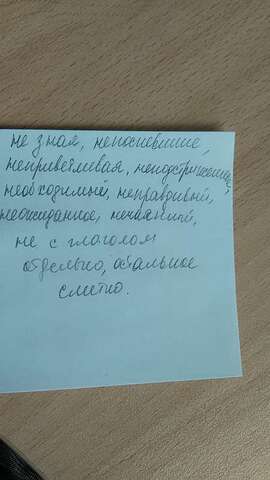 не зная, непоспевшие,
неприветливая, неподстриженные,
необходимый, неправдивый,
неожиданное, нечаянный,
не с глаголом
отдельно, остальное
слитно.